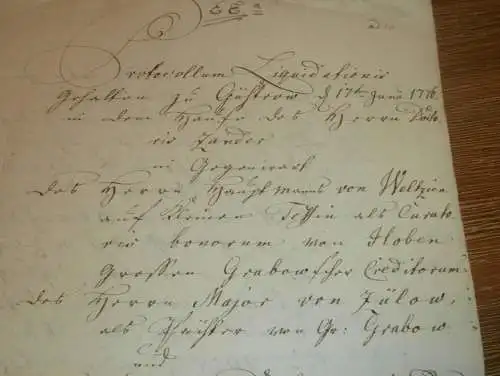 EE
Protocollum Liquidationis
Gehalten zu Güstrow d 17ten Junii 1776
in dem Hause des Herrn Docto-
ris Zander
in Gegenwart
des Herrn Hauptmanns von Weltzien
auf Kleinen Tessin als Curato-
ris bonorum von Hoben
Grossen Grabowscher Creditorum
des Herrn Major von Zülow,
als Pächter von Gr: Grabow
und